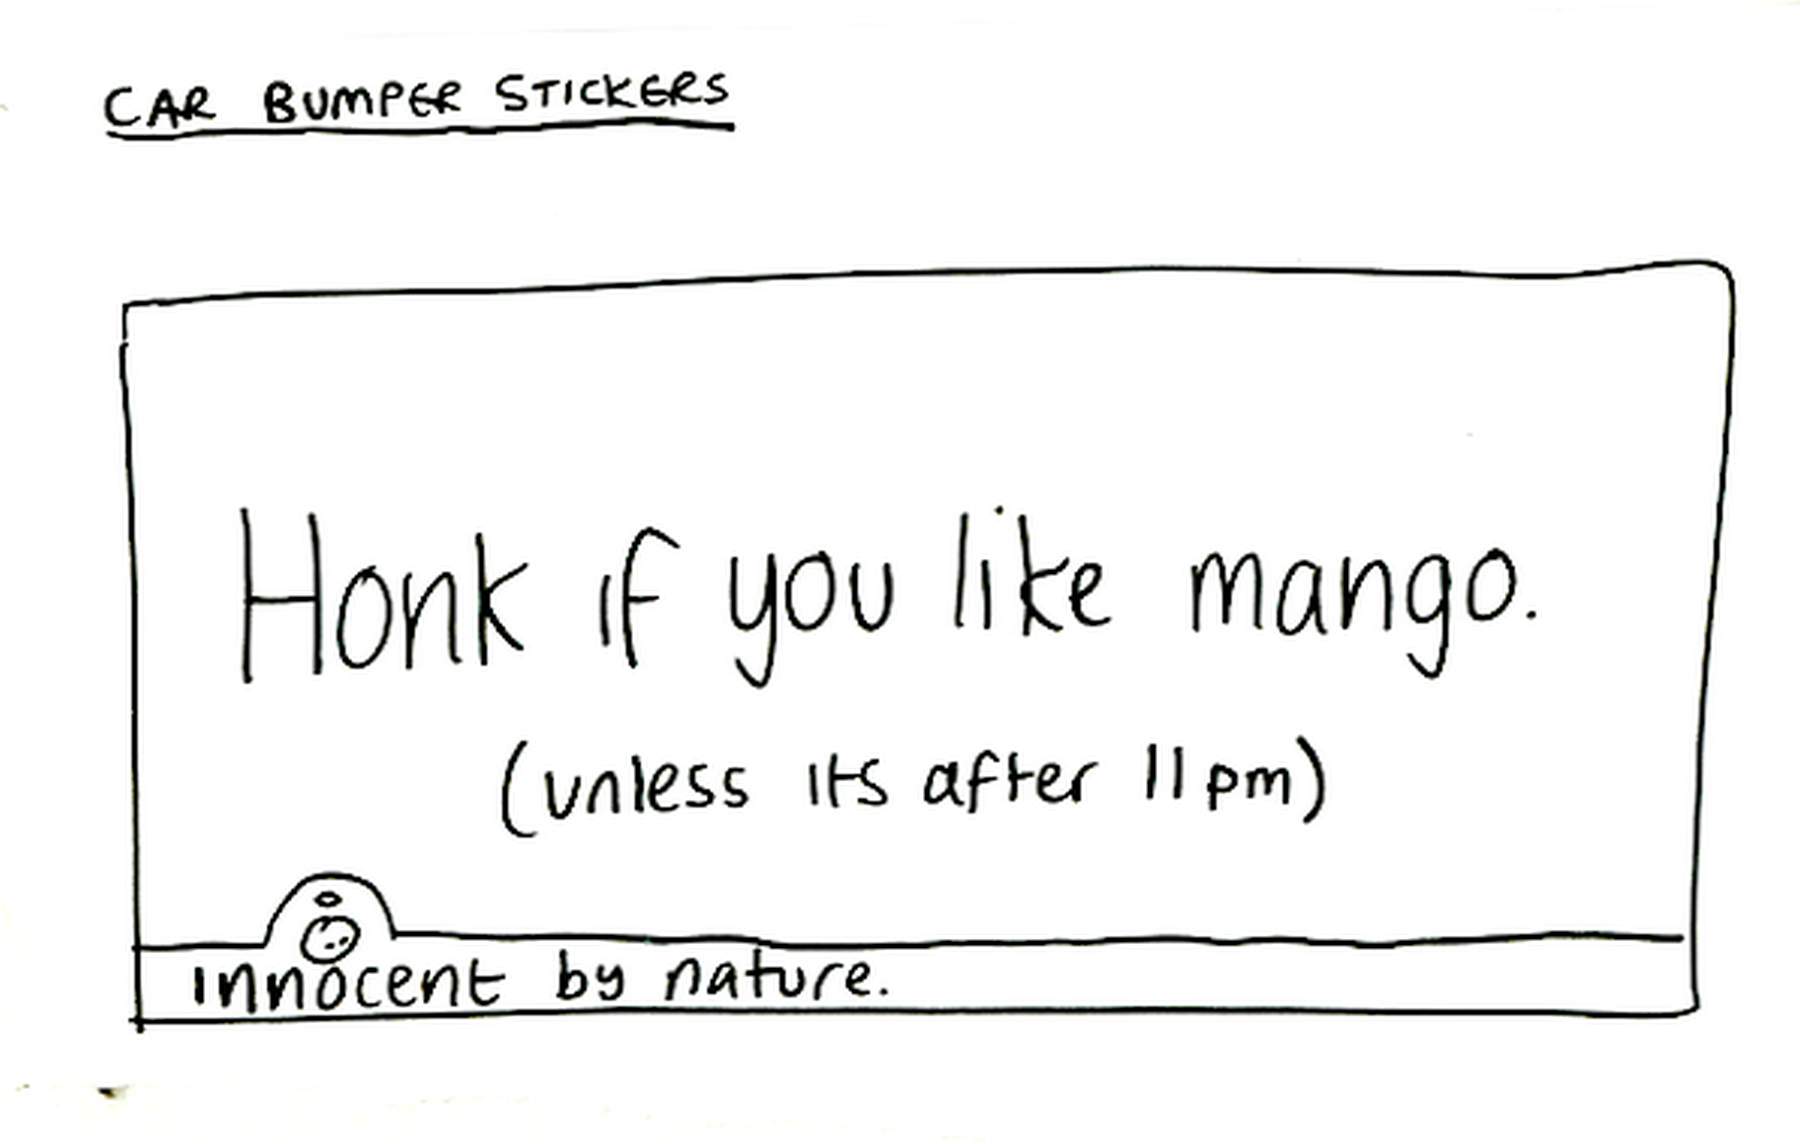 CAR BUMPER STICKERS
Honk if you like mango.
(unless its after 11pm)
innocent by nature.